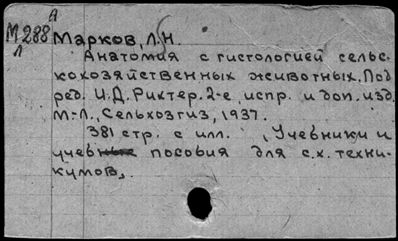 А
М288 Марков, Л.Н.
Л
Анатомия с гистологией сельс-
кохозяйственных животных. Под
ред. И.Д. Рихтер. 2-е, испр. и доп. изд.
М.-Л., Сельхозгиз, 1937.
381 стр. с илл. (Учебники и
учебные пособия для с.х. техни-
кумов).